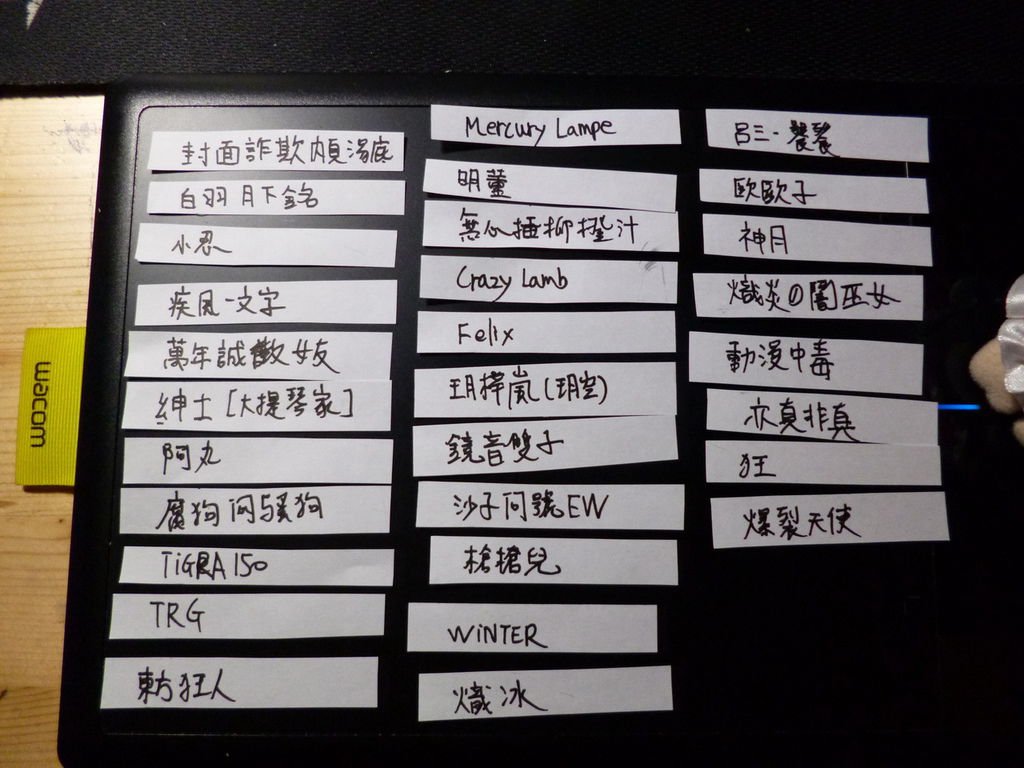 封面詐欺內頁湯底
白羽月下銘
小忍
疾風一文字
萬年誠徵女友
紳士[大提琴家]
阿丸
腐狗 阿騷狗
TiGRA 150
TRG
東方狂人
Mercury Lampe
明菫
無心插柳擋汁
Crazy Lamb
Felix
玥樺嵐(玥空)
鏡音雙子
沙子问號EW
槍搶兒
WiNTER
熾冰
呂三·饕餮
歐歐子
神月
熾炎の闇巫女
動漫中毒
亦真非真
狂
爆裂天使
wacom